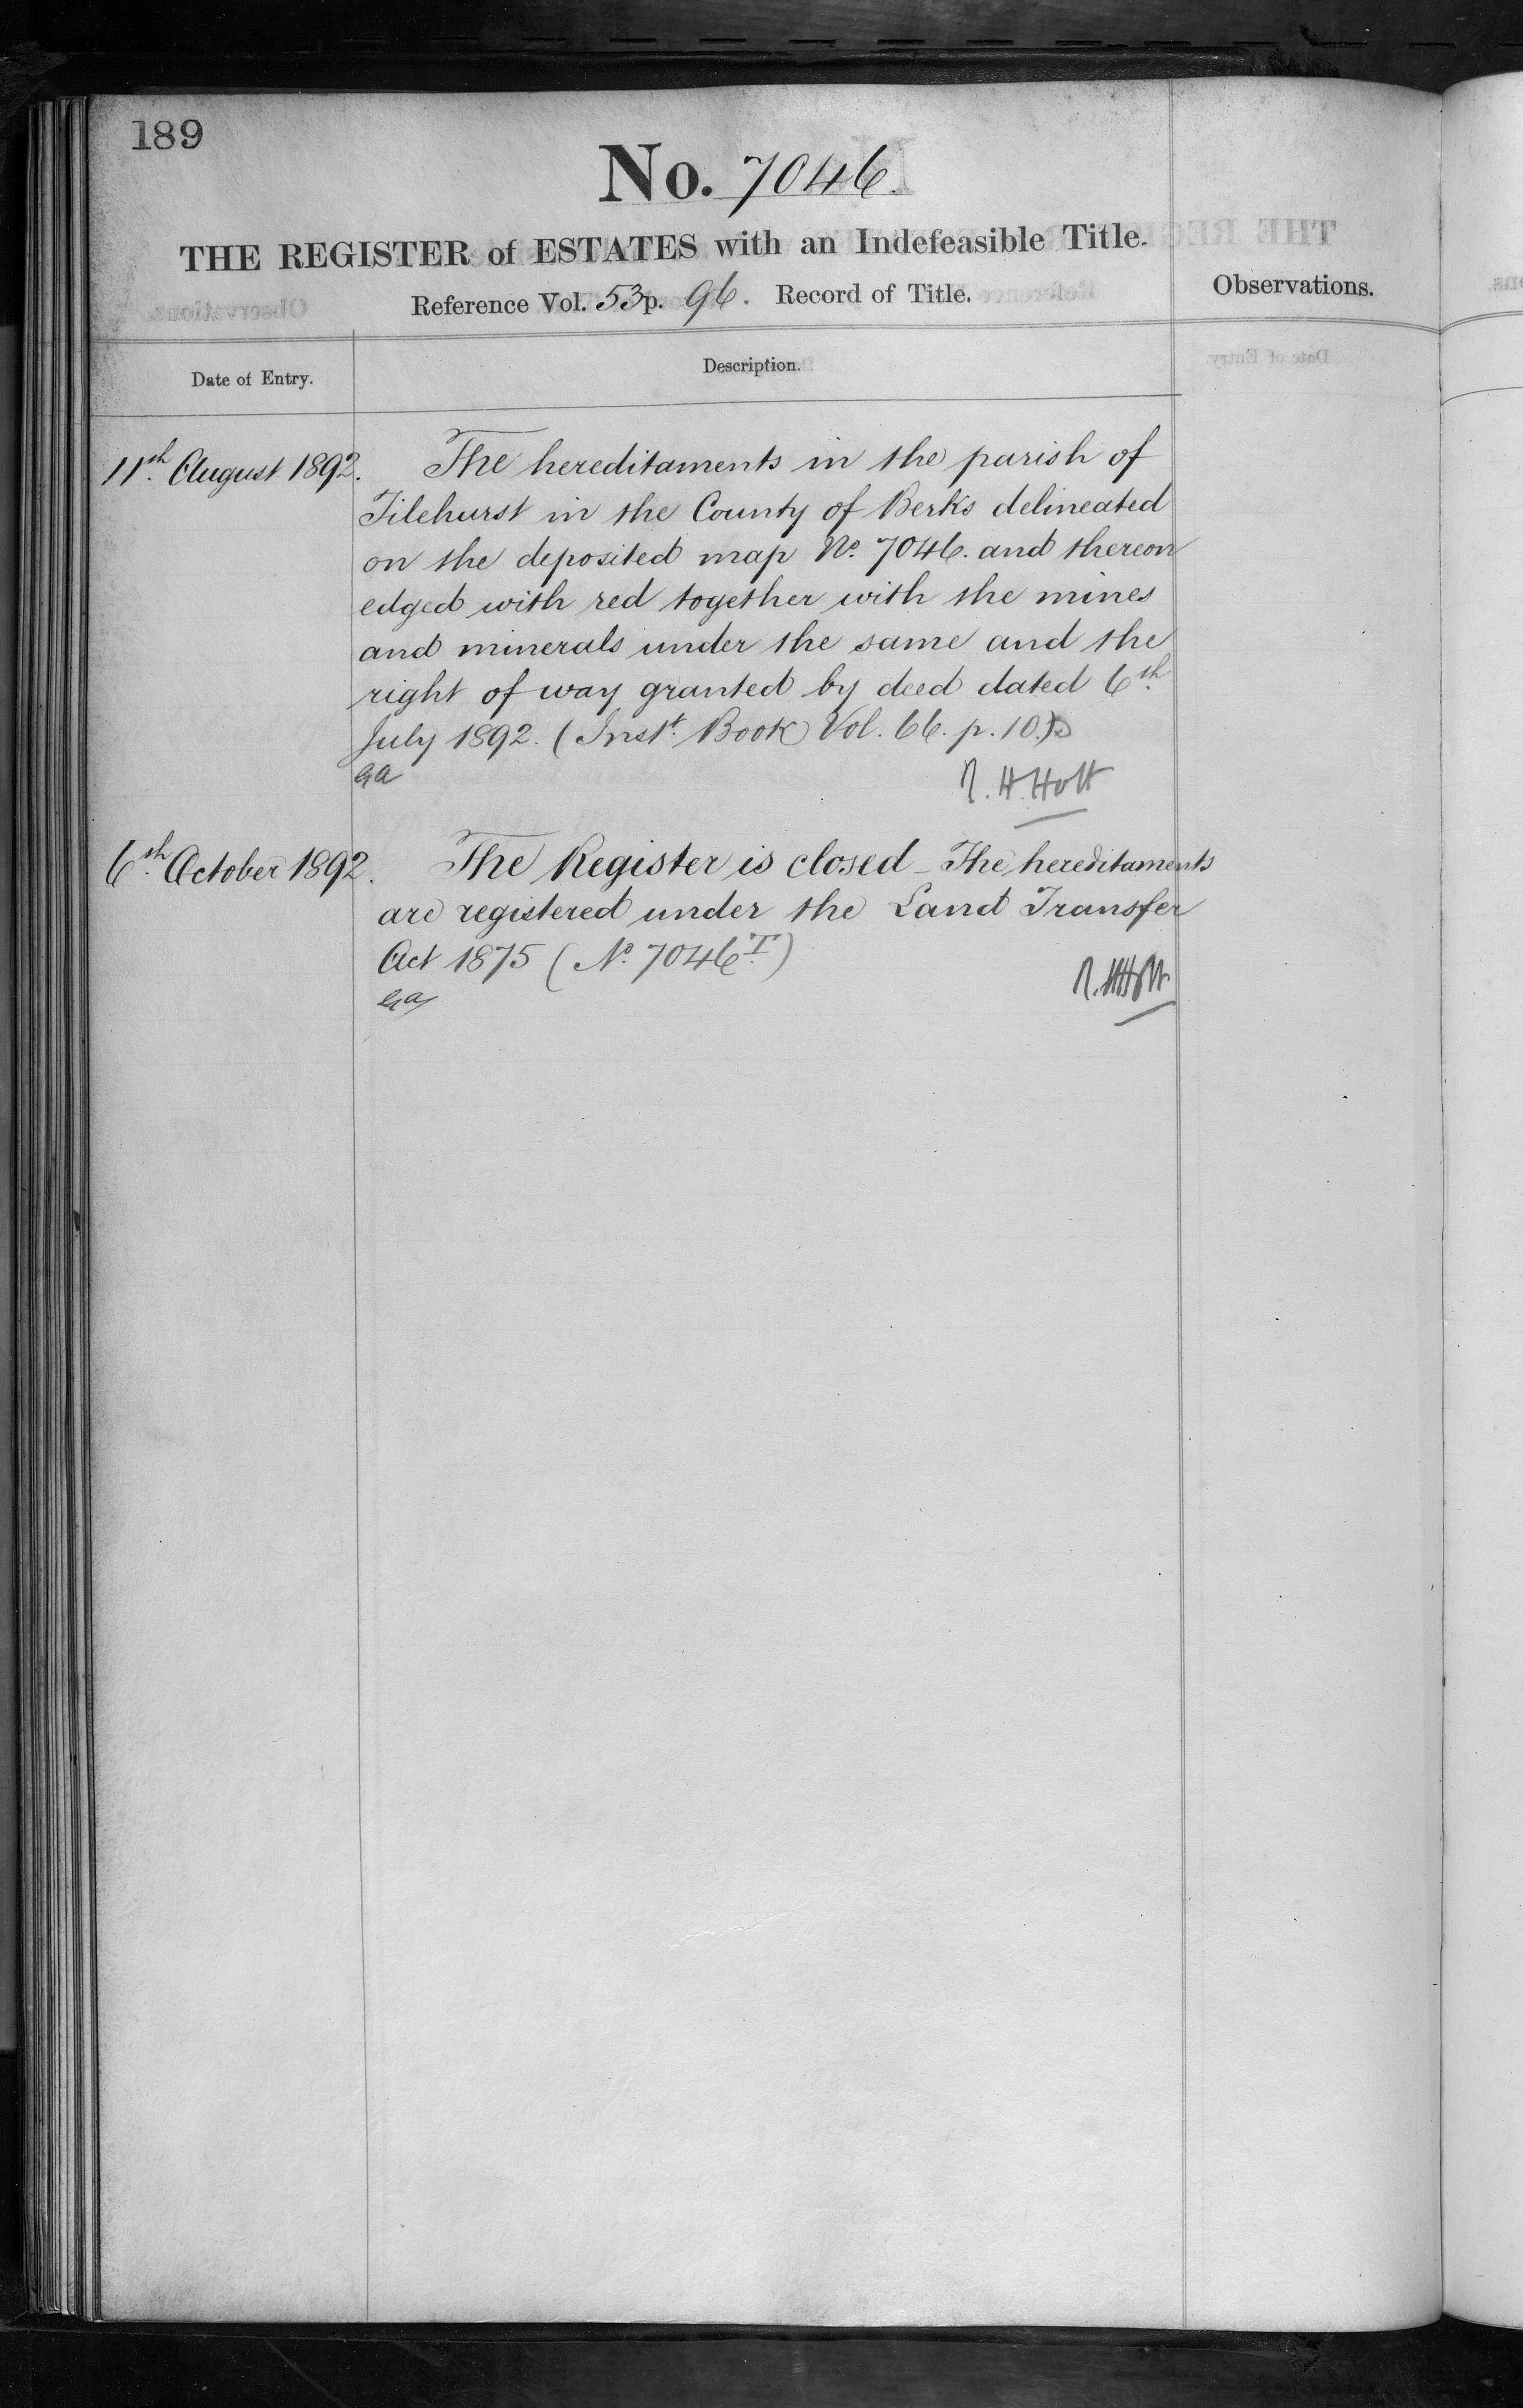 189
No. 7046.
THE REGISTER of ESTATES with an Indefeasible Title.
Reference Vol. 53 p. 96. Record of Title.
Observations.
Date of Entry.
Description.
11th August 1892.
The hereditaments in the parish of
Tilehurst in the County of Berks delineated
on the deposited map No. 7046. and thereon
edged with red together with the mines
and minerals under the same and the
right of way granted by deed dated 6th
July 1892. (Inst. Book Vol. 66. p. 10.)
R. H. Holt
6th October 1892.
The Register is closed - The hereditaments
are registered under the Land Transfer
Act 1875 (No. 7046T.)
R. H. Holt